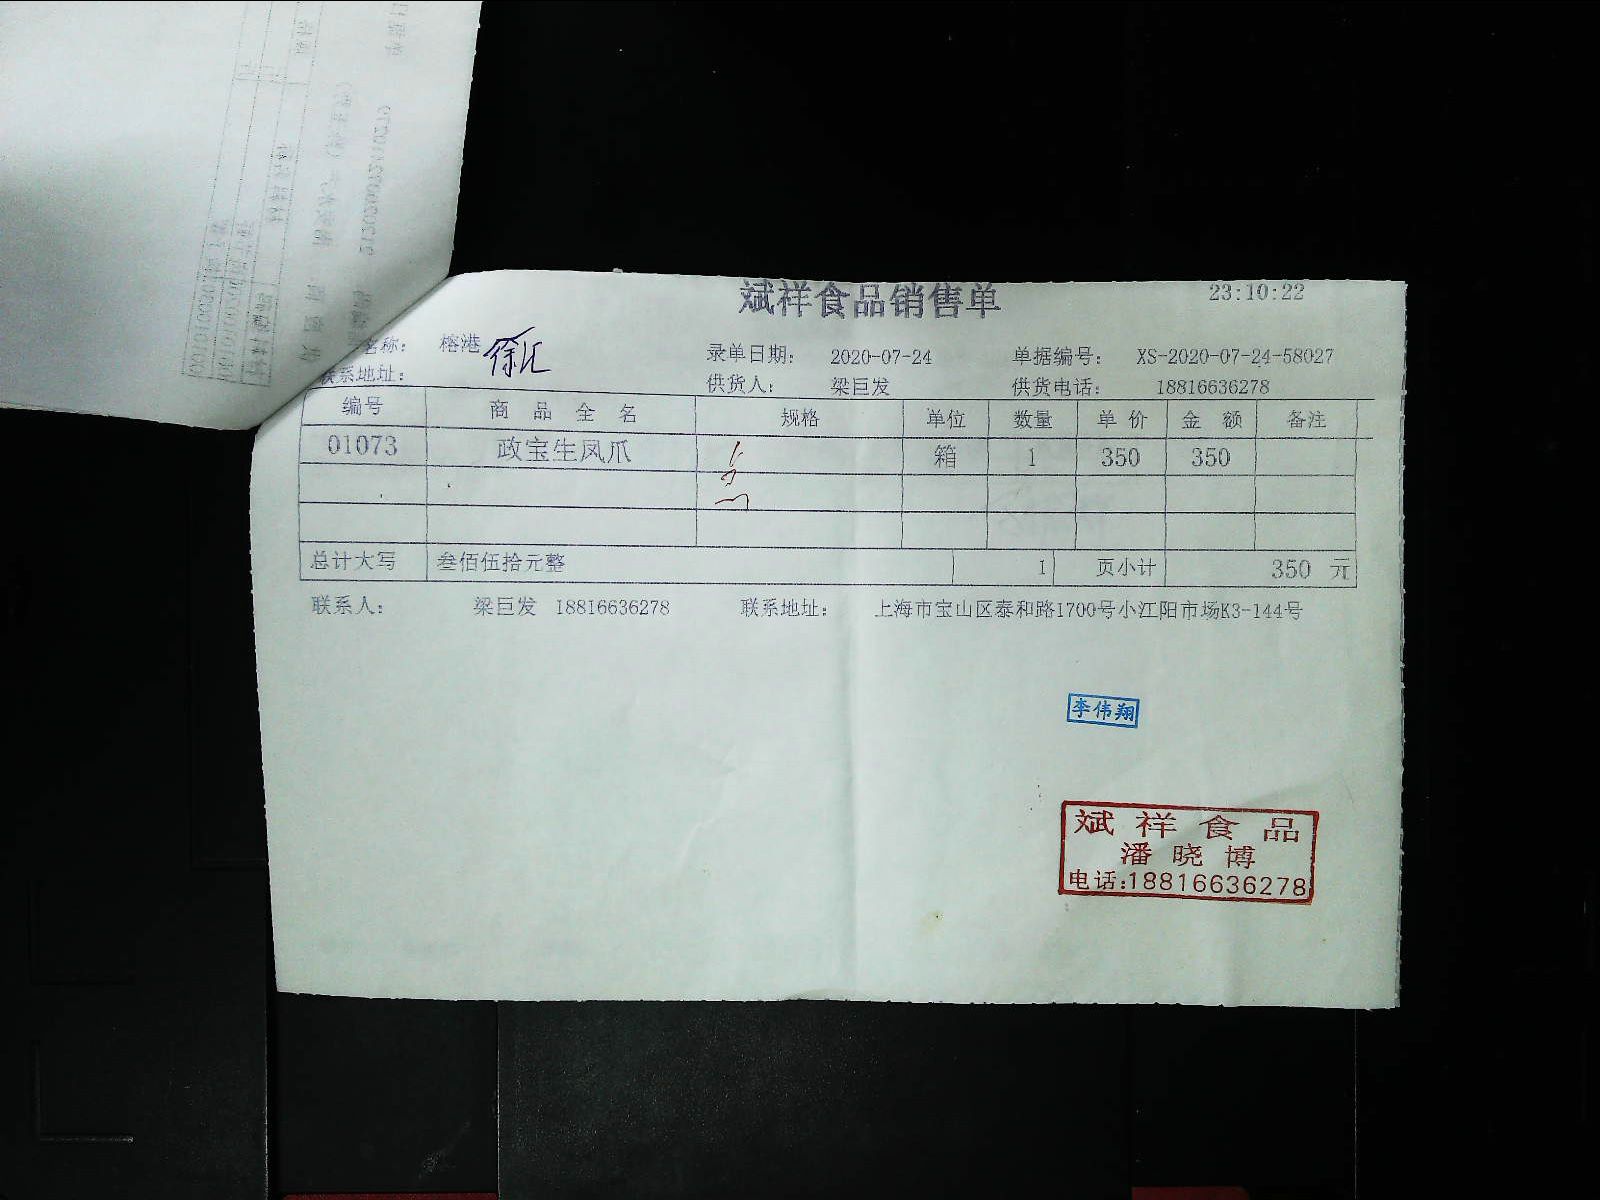 斌祥食品销售单 23:10:22
名称: 榕港 徐汇 录单日期: 2020-07-24 单据编号: XS-2020-07-24-58027
联系地址: 供货人: 梁巨发 供货电话: 18816636278
编号 商品全名 规格 单位 数量 单价 金额 备注
01073 政宝生凤爪 箱 1 350 350
总计大写 叁佰伍拾元整 1 页小计 350 元
联系人: 梁巨发 18816636278 联系地址: 上海市宝山区泰和路1700号小江阳市场K3-144号
李伟翔
斌祥食品
潘晓博
电话:18816636278